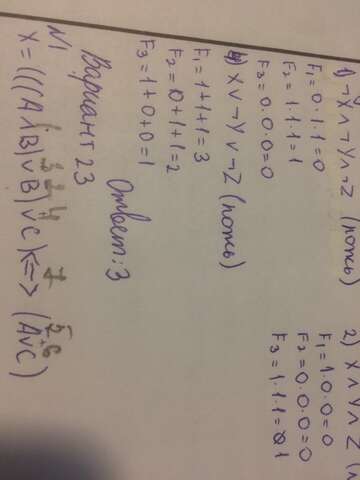 1) ¬X∧¬Y∧¬Z (ложь)
F₁=0·1·1=0
F₂=1·1·1=1
F₃=0·0·0=0
2) X∧Y∧Z
F₁=1·0·0=0
F₂=0·0·0=0
F₃=1·1·1=1
4) X∨¬Y∨¬Z (ложь)
F₁=1+1+1=3
F₂=0+1+1=2
F₃=1+0+0=1
Ответ: 3
Вариант 23
N1
X=(((A∧B)∨B)∨C)<=>(A∨C)